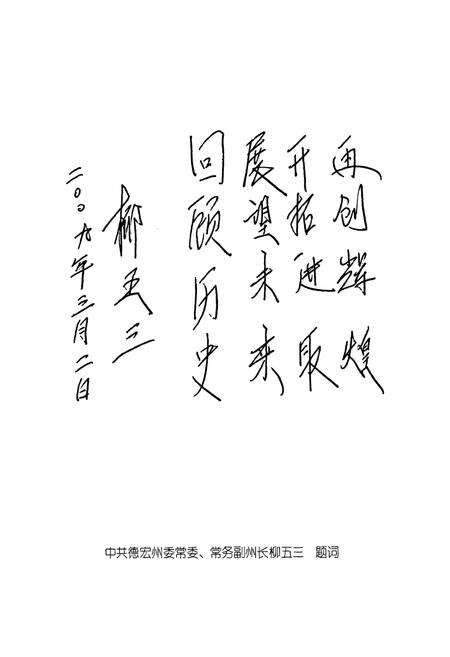 再创辉煌
开拓进取
展望未来
回顾历史
柳五三
二〇〇九年三月二日
中共德宏州委常委、常务副州长柳五三　题词